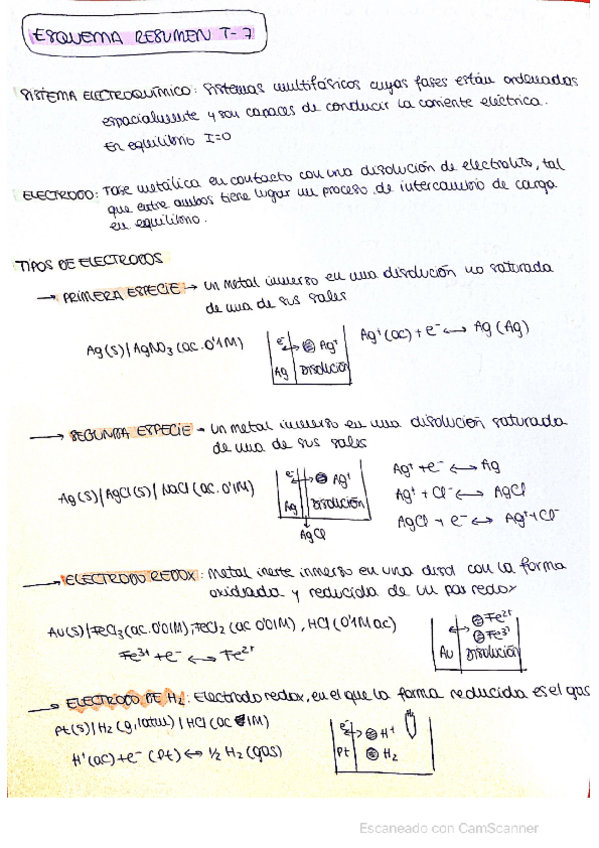 ESQUEMA RESUMEN T-7
SISTEMA ELECTROQUÍMICO: Sistemas multifásicos cuyas fases están ordenadas
espacialmente y son capaces de conducir la corriente eléctrica.
En equilibrio I=0
ELECTRODO: Fase metálica en contacto con una disolución de electrolito, tal
que entre ambos tiene lugar un proceso de intercambio de carga
en equilibrio.
TIPOS DE ELECTRODOS
→ PRIMERA ESPECIE → un metal inmerso en una disolución no saturada
de una de sus sales
Ag(s)|AgNO₃(ac.0'1M)
e⁻ Ag⁺
Ag Disolución
Ag⁺(ac)+e⁻ ↔ Ag(Ag)
→ SEGUNDA ESPECIE → un metal inmerso en una disolución saturada
de una de sus sales
Ag(s)|AgCl(s)|NaCl(ac.0'1M)
e⁻ Ag⁺
Ag Disolución
AgCl
Ag⁺+e⁻ ↔ Ag
Ag⁺+Cl⁻ ↔ AgCl
AgCl+e⁻ ↔ Ag⁺+Cl⁻
→ ELECTRODO REDOX: Metal inerte inmerso en una disol con la forma
oxidada y reducida de un par redox
Au(s)|FeCl₃(ac.0'01M),FeCl₂(ac 0'01M),HCl(0'1M ac)
Fe³⁺+e⁻ ↔ Fe²⁺
Fe²⁺
Fe³⁺
Au Disolución
→ ELECTRODO DE H₂: Electrodo redox, en el que la forma reducida es el gas
Pt(s)|H₂(g,1atm)|HCl(ac 1M)
H⁺(ac)+e⁻(Pt) ↔ ½ H₂(gas)
e⁻ H⁺
Pt H₂
Escaneado con CamScanner